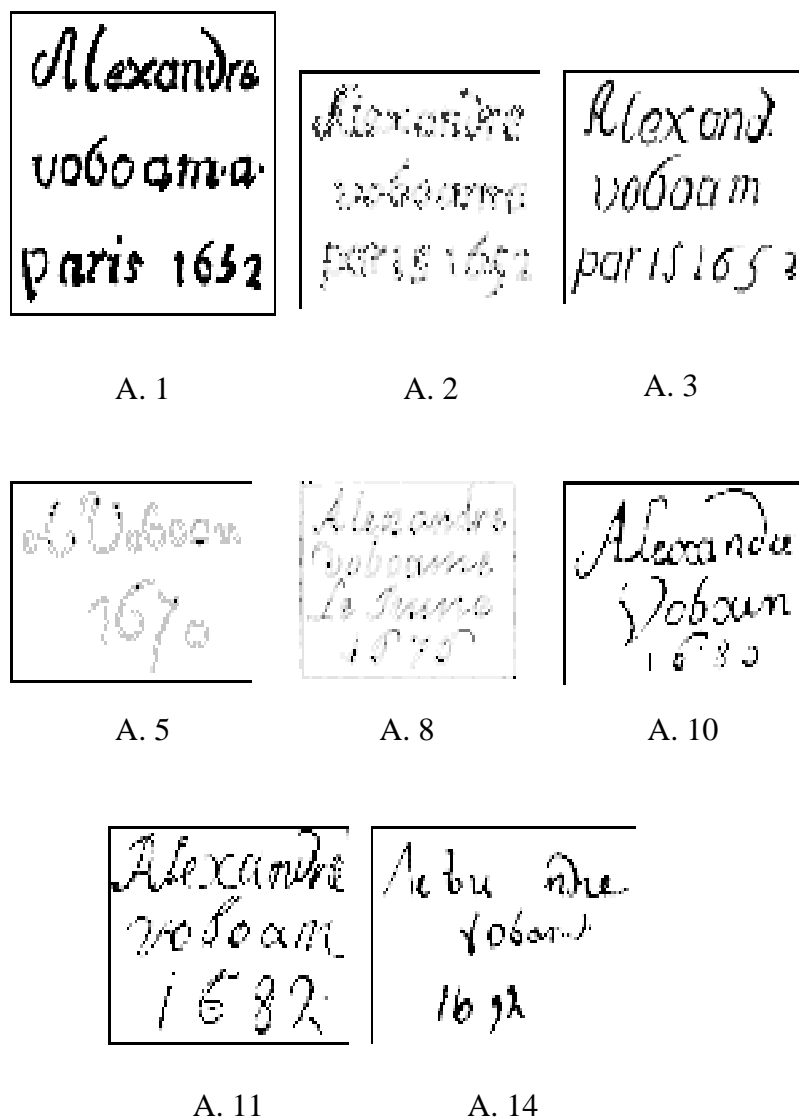 Alexandre
voboam·a·
paris 1652
A. 1
Alexandre
voboame
paris 1652
A. 2
Alexand.
voboam
paris 1652
A. 3
Voboam
1670
A. 5
Alexandre
Voboame
Le Jeune
1675
A. 8
Alexandre
Voboam
1680
A. 10
Alexandre
voboam
1682
A. 11
voboam
A. 14